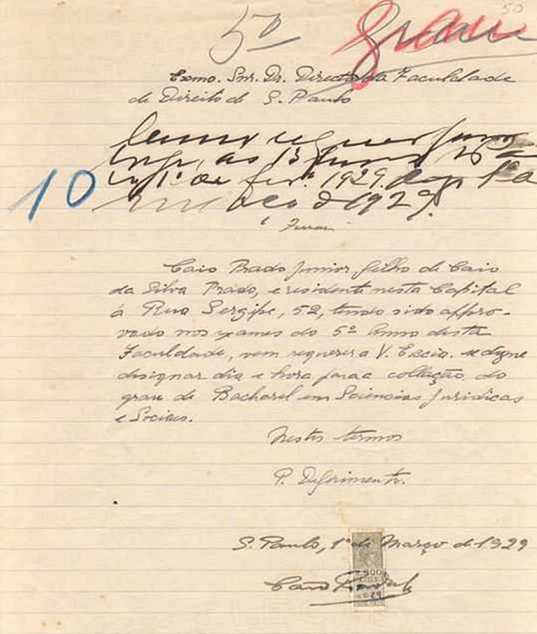 50
5º
Grau
Exmo. Snr. Dr. Director da Faculdade
de Direito de S. Paulo
Como requer
10
1º de 1929.
março de 1929.
Caio Prado Junior filho de Caio
da Silva Prado, e residente nesta Capital
á Rua Sergipe, 52, tendo sido appro-
vado nos exames do 5º Anno desta
Faculdade, vem requerer a V. Excia. se digne
designar dia e hora para a collação do
grau de Bacharel em Sciencias Juridicas
e Sociaes.
Nestes termos
P. Deferimento.
S. Paulo, 1º de Março de 1929
Caio Prado Jr